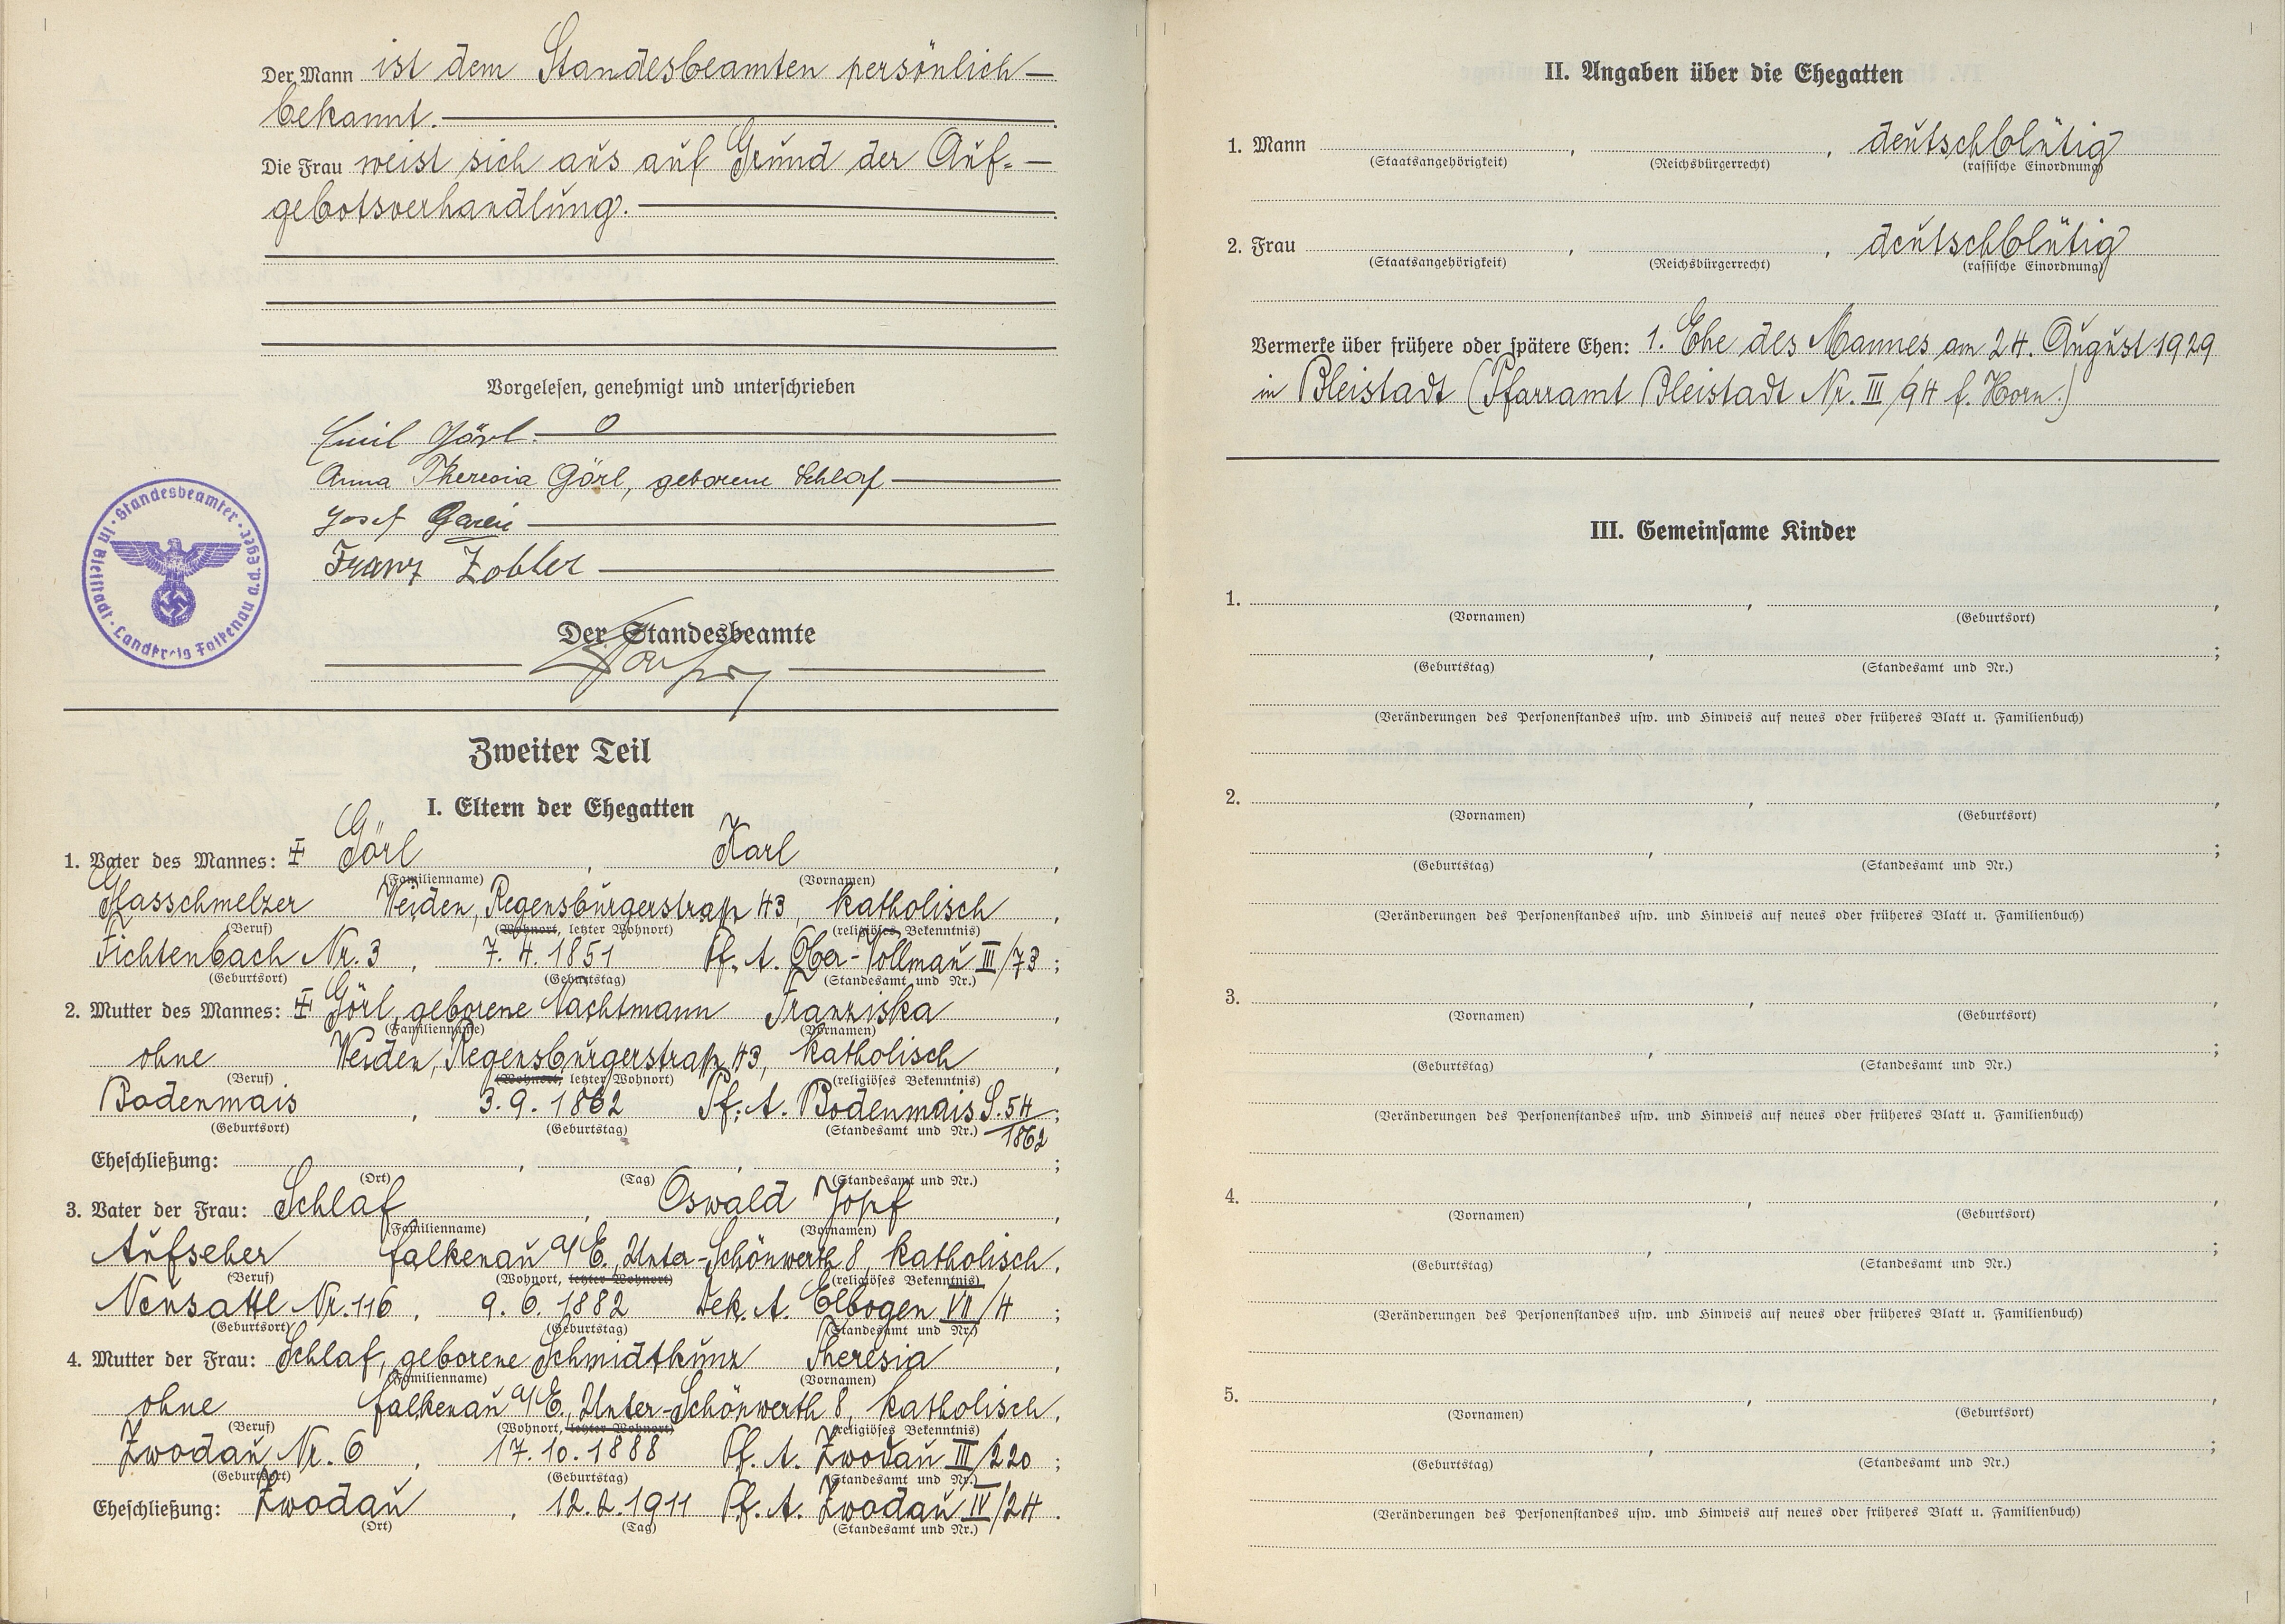 Der Mann ist dem Standesbeamten persönlich
bekannt.
Die Frau weist sich aus auf Grund der Auf-
gebotsverhandlung.
Vorgelesen, genehmigt und unterschrieben
Emil Görl.
Anna Theresia Görl, geborene Schlaf
Josef
Franz Zobler
Standesbeamter · Egr. d. d. · in Bleistadt · Landkreis Falkenau
Der Standesbeamte
Zweiter Teil
I. Eltern der Ehegatten
1. Vater des Mannes: Görl, Karl,
(Familienname) (Vornamen)
Glasschmelzer Weiden, Regensburgerstraße 43, katholisch,
(Beruf) (Wohnort, letzter Wohnort) (religiöses Bekenntnis)
Fichtenbach Nr. 3, 7. 4. 1851 Pf. A. Ober-Vollmau III/73;
(Geburtsort) (Geburtstag) (Standesamt und Nr.)
2. Mutter des Mannes: Görl, geborene Nachtmann Franziska,
(Familienname) (Vornamen)
ohne Weiden, Regensburgerstraße 43, katholisch,
(Beruf) (Wohnort, letzter Wohnort) (religiöses Bekenntnis)
Bodenmais, 3. 9. 1862 Pf. A. Bodenmais S. 54/1862;
(Geburtsort) (Geburtstag) (Standesamt und Nr.)
Eheschließung: , , ;
(Ort) (Tag) (Standesamt und Nr.)
3. Vater der Frau: Schlaf, Oswald Josef,
(Familienname) (Vornamen)
Aufseher Falkenau a/E., Unter-Schönwerth 8, katholisch,
(Beruf) (Wohnort, letzter Wohnort) (religiöses Bekenntnis)
Neusattl Nr. 116, 9. 6. 1882 Dek. A. Elbogen VII/4;
(Geburtsort) (Geburtstag) (Standesamt und Nr.)
4. Mutter der Frau: Schlaf, geborene Schmidtkunz Theresia,
(Familienname) (Vornamen)
ohne Falkenau a/E., Unter-Schönwerth 8, katholisch,
(Beruf) (Wohnort, letzter Wohnort) (religiöses Bekenntnis)
Zwodau Nr. 6, 17. 10. 1888 Pf. A. Zwodau III/220;
(Geburtsort) (Geburtstag) (Standesamt und Nr.)
Eheschließung: Zwodau, 12. 2. 1911 Pf. A. Zwodau IV/24.
(Ort) (Tag) (Standesamt und Nr.)
II. Angaben über die Ehegatten
1. Mann , , deutschblütig
(Staatsangehörigkeit) (Reichsbürgerrecht) (rassische Einordnung)
2. Frau , , deutschblütig
(Staatsangehörigkeit) (Reichsbürgerrecht) (rassische Einordnung)
Vermerke über frühere oder spätere Ehen: 1. Ehe des Mannes am 24. August 1929
in Bleistadt (Pfarramt Bleistadt Nr. III/94 f. Horn.)
III. Gemeinsame Kinder
1. , ,
(Vornamen) (Geburtsort)
, ;
(Geburtstag) (Standesamt und Nr.)
(Veränderungen des Personenstandes usw. und Hinweis auf neues oder früheres Blatt u. Familienbuch)
2. , ,
(Vornamen) (Geburtsort)
, ;
(Geburtstag) (Standesamt und Nr.)
(Veränderungen des Personenstandes usw. und Hinweis auf neues oder früheres Blatt u. Familienbuch)
3. , ,
(Vornamen) (Geburtsort)
, ;
(Geburtstag) (Standesamt und Nr.)
(Veränderungen des Personenstandes usw. und Hinweis auf neues oder früheres Blatt u. Familienbuch)
4. , ,
(Vornamen) (Geburtsort)
, ;
(Geburtstag) (Standesamt und Nr.)
(Veränderungen des Personenstandes usw. und Hinweis auf neues oder früheres Blatt u. Familienbuch)
5. , ,
(Vornamen) (Geburtsort)
, ;
(Geburtstag) (Standesamt und Nr.)
(Veränderungen des Personenstandes usw. und Hinweis auf neues oder früheres Blatt u. Familienbuch)